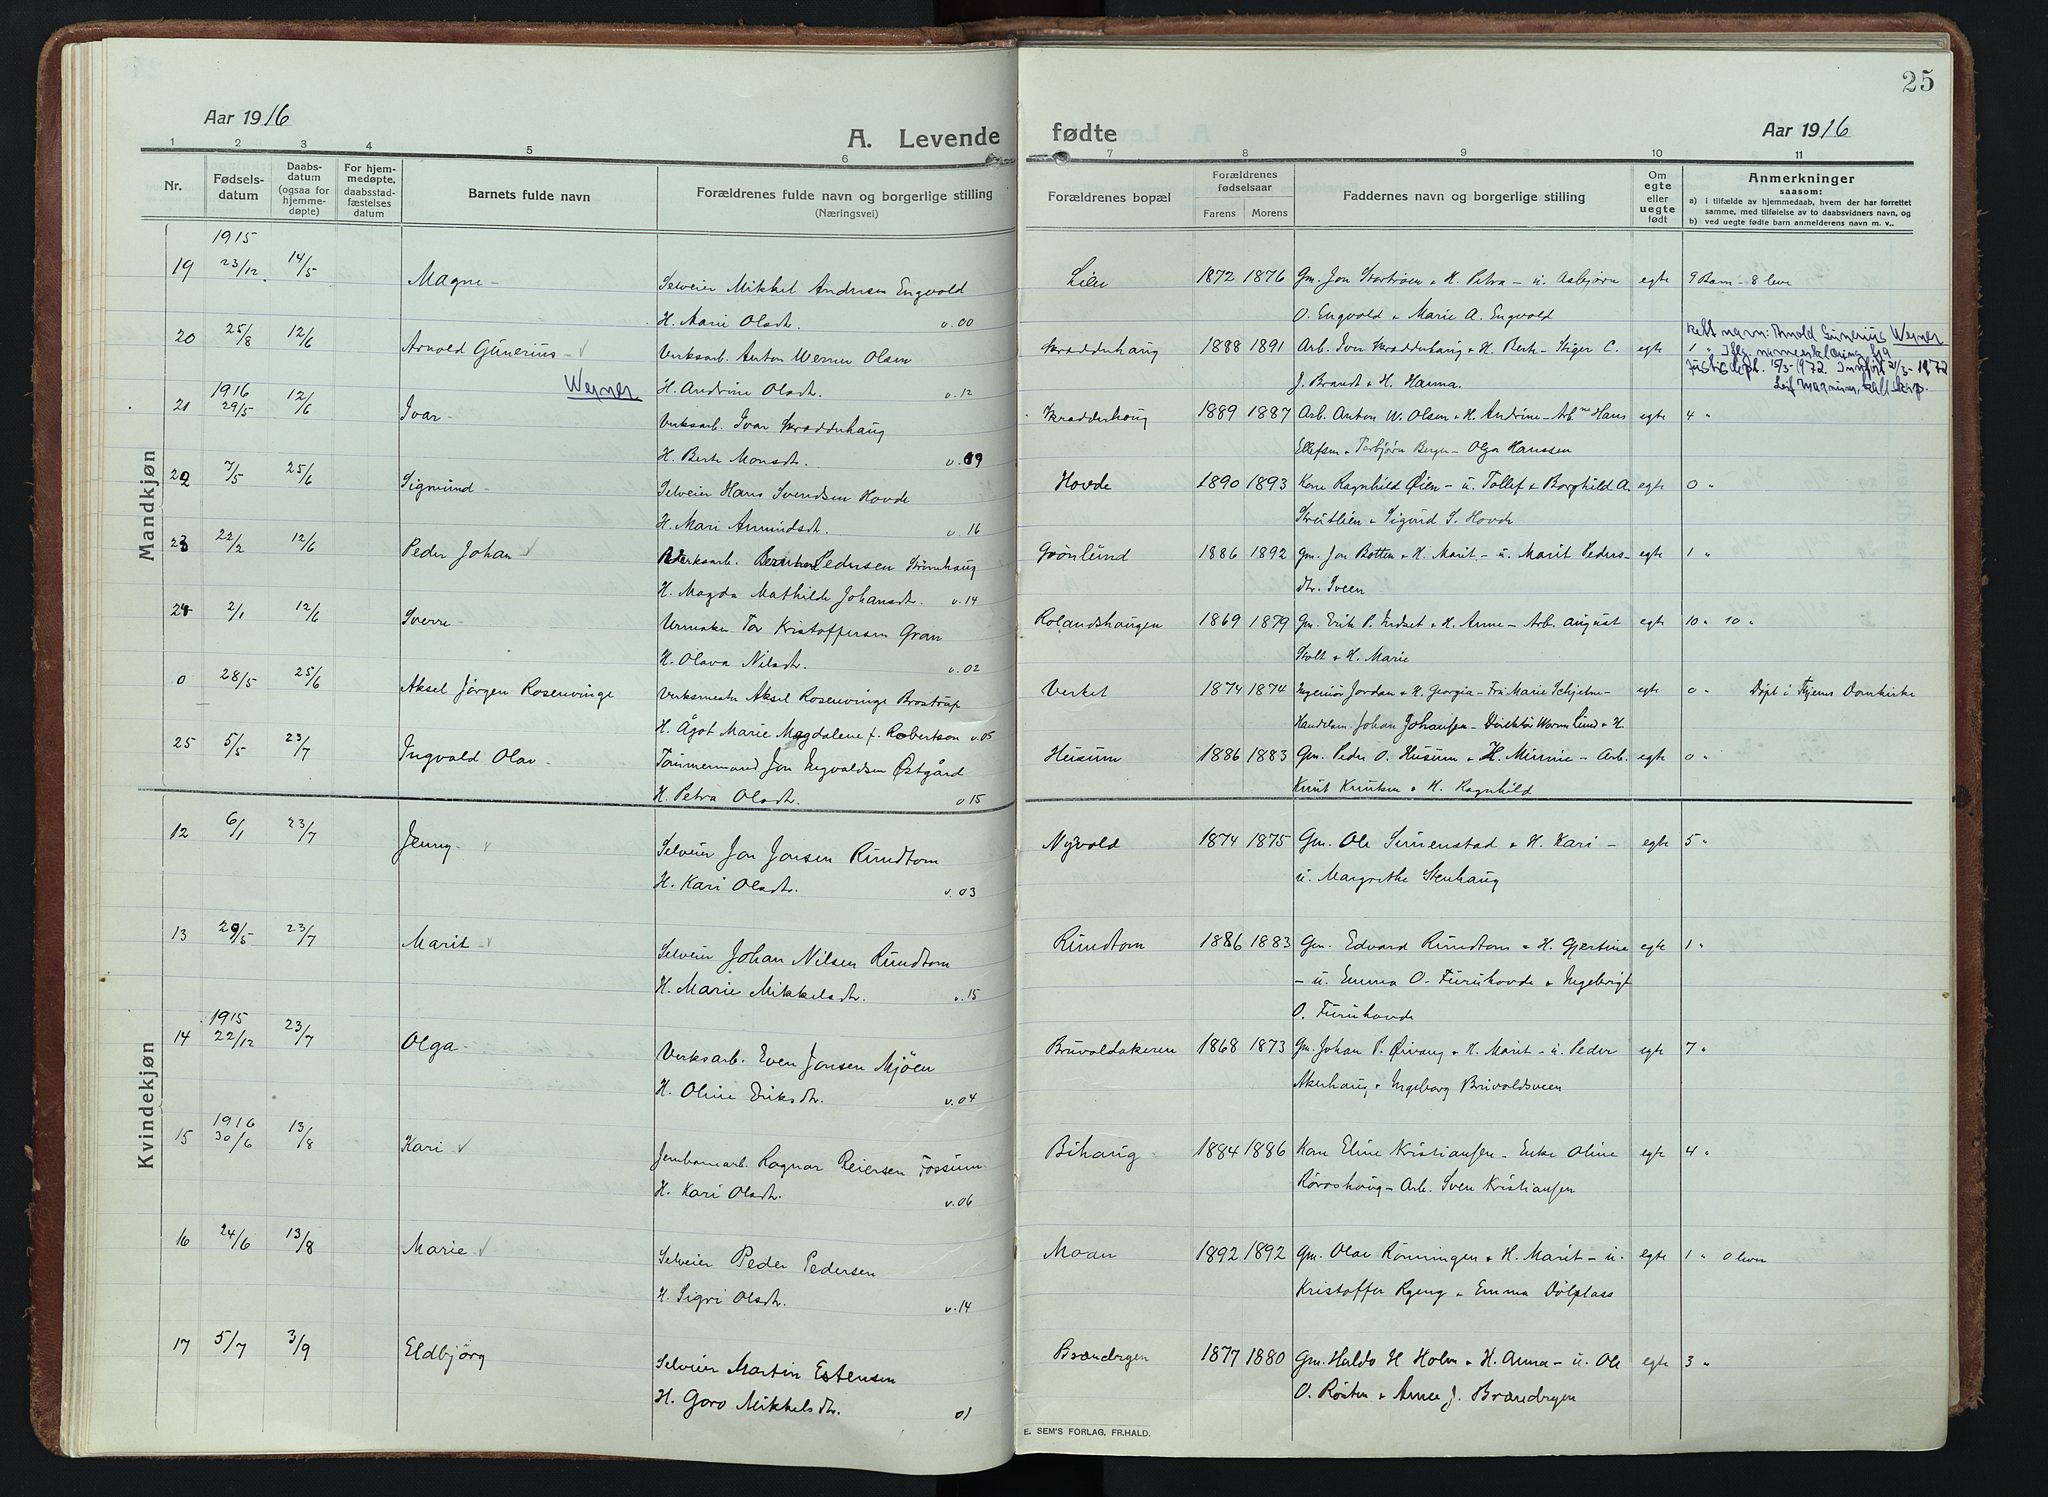 25
Aar 1916
A. Levende
fødte
Aar 1916
1 2 3 4 5 6 7 8 9 10 11
Nr.
Fødsels-
datum
Daabs-
datum
(ogsaa for
hjemme-
døpte)
For hjem-
medøpte,
daabsstad-
fæstelses
datum
Barnets fulde navn
Forældrenes fulde navn og borgerlige stilling
(Næringsvei)
Forældrenes bopæl
Forældrenes
fødselsaar
Farens Morens
Faddernes navn og borgerlige stilling
Om
egte
eller
uegte
født
Anmerkninger
saasom:
a) i tilfælde av hjemmedaab, hvem der har forrettet
samme, med tilføielse av to daabsvidners navn, og
b) ved uegte fødte barn anmelderens navn m. v..
Mandkjøn
1915
19 23/12 14/5 Magne Selveier Mikkel Andersen Engvold Lien 1872 1876 Gm. Jon Stortrøen & H. Petra - u. Asbjørn egte 9 Barn - 8 leve
H. Marie Olsdtr. v. 00 O. Engvold & Marie A. Engvold
20 25/8 12/6 Arnold Gunerius Verksarb. Anton Werner Olsen Skradderhaug 1888 1891 Arb. Iver Skradderhaug & H. Berte - C. egte 1 "
Rett navn: Arnold Gunerius Werner
Iflg. navneerklæring fra
Justisdept. 15/3-1972. Innført 21/3-1972
Werner H. Andrine Olsdtr. v. 12 J. Brandt & H. Hanna.
1916
21 29/5 12/6 Ivar Verksarb. Ivar Skradderhaug Skradderhaug 1889 1887 Arb. Anton W. Olsen & H. Andrine - Arb.ne Hans egte 4 "
H. Berte Monsdtr. v. 09 Ellefsen & Torbjørn Berger - Olga Hanssen
22 7/5 25/6 Sigmund Selveier Hans Svendsen Hovde Hovde 1890 1893 Kone Ragnhild Øien - u. Tollef & Borghild A. egte 0 "
H. Mari Amundsdtr. v. 16 Strutlien & Sigurd S. Hovde
23 22/2 12/6 Peder Johan Verksarb. Pedersen Grønlund 1886 1892 Gm. Jon Botten & H. Marit - u. Marit Peders- egte 1 "
H. Magda Mathilde Johansdtr. v. 14 dtr. Sveen
24 2/1 12/6 Sverre Urmaker Tor Kristoffersen Gran Rolandshaugen 1869 1879 Gm. Erik P. Indset & H. Anne - Arb. August egte 10 " 10 "
H. Olava Nilsdtr. v. 02 Stolt & H. Marie
0 28/5 25/6 Aksel Jørgen Rosenvinge Verksmester Aksel Rosenvinge Brostrup Verket 1874 1874 Ingeniør Jordan & H. Georgia - Fru Marie Schjelme- egte 0 " Døpt i Thjems Domkirke
H. Ågot Marie Magdalene f. Robertson v. 05 Handelsm. Johan Johansen - Direktør Worm Lund & H.
25 5/5 23/7 Ingvald Olav Tømmermand Jon Ingvaldsen Østgård Husum 1886 1883 Gm. Peder O. Husum & H. Minnie - Arb. egte 0 "
H. Petra Olsdtr. v 15 Knut Knutsen & H. Ragnhild
Kvindekjøn
12 6/1 23/7 Jenny Selveier Jon Jonsen Rundtom Nyvold 1874 1875 Gm. Ole Simenstad & H. Kari - egte 5 "
H. Kari Olsdtr. v. 03 u. Margrethe Stenhaug
13 29/5 23/7 Marit Selveier Johan Nilsen Rundtom Rundtom 1886 1883 Gm. Edvard Rundtom & H. Gjertine egte 1 "
H. Marie Mikkelsdtr. v. 15 - u. Emma O. Furuhovde & Ingebrigt
O. Furuhovde
1915
14 22/12 23/7 Olga Verksarb. Even Jonsen Mjøen Bruvoldakeren 1868 1873 Gm. Johan P. Ørvang & H. Marit - u. Peder egte 7 "
H. Oline Eriksdtr. v. 04 Akerhaug & Ingeborg Bruvoldsveen
1916
15 30/6 13/8 Kari Jernbanearb. Ragnar Reiersen Fossum Bihaug 1884 1886 Kone Eline Kristiansen - Enke Oline egte 4 "
H. Kari Olsdtr. v. 06 Røroshaug - Arb. Sven Kristiansen
16 24/6 13/8 Marie Selveier Peder Pedersen Moan 1892 1892 Gm. Olav Rønningen & H. Marit - u. egte 1 " 0 leve
H. Sigri Olsdtr. v. 14 Kristoffer Ryeng & Emma Dølplass
17 5/7 3/9 Eldbjørg Selveier Martin Estensen Brænderyen 1877 1880 Gm. Haldo H Holm & H. Anna - u. Ole egte 3 "
H. Goro Mikkelsdtr. 01 O. Røsten & Anne J. Brænderyen
E. SEM'S FORLAG, FR.HALD.